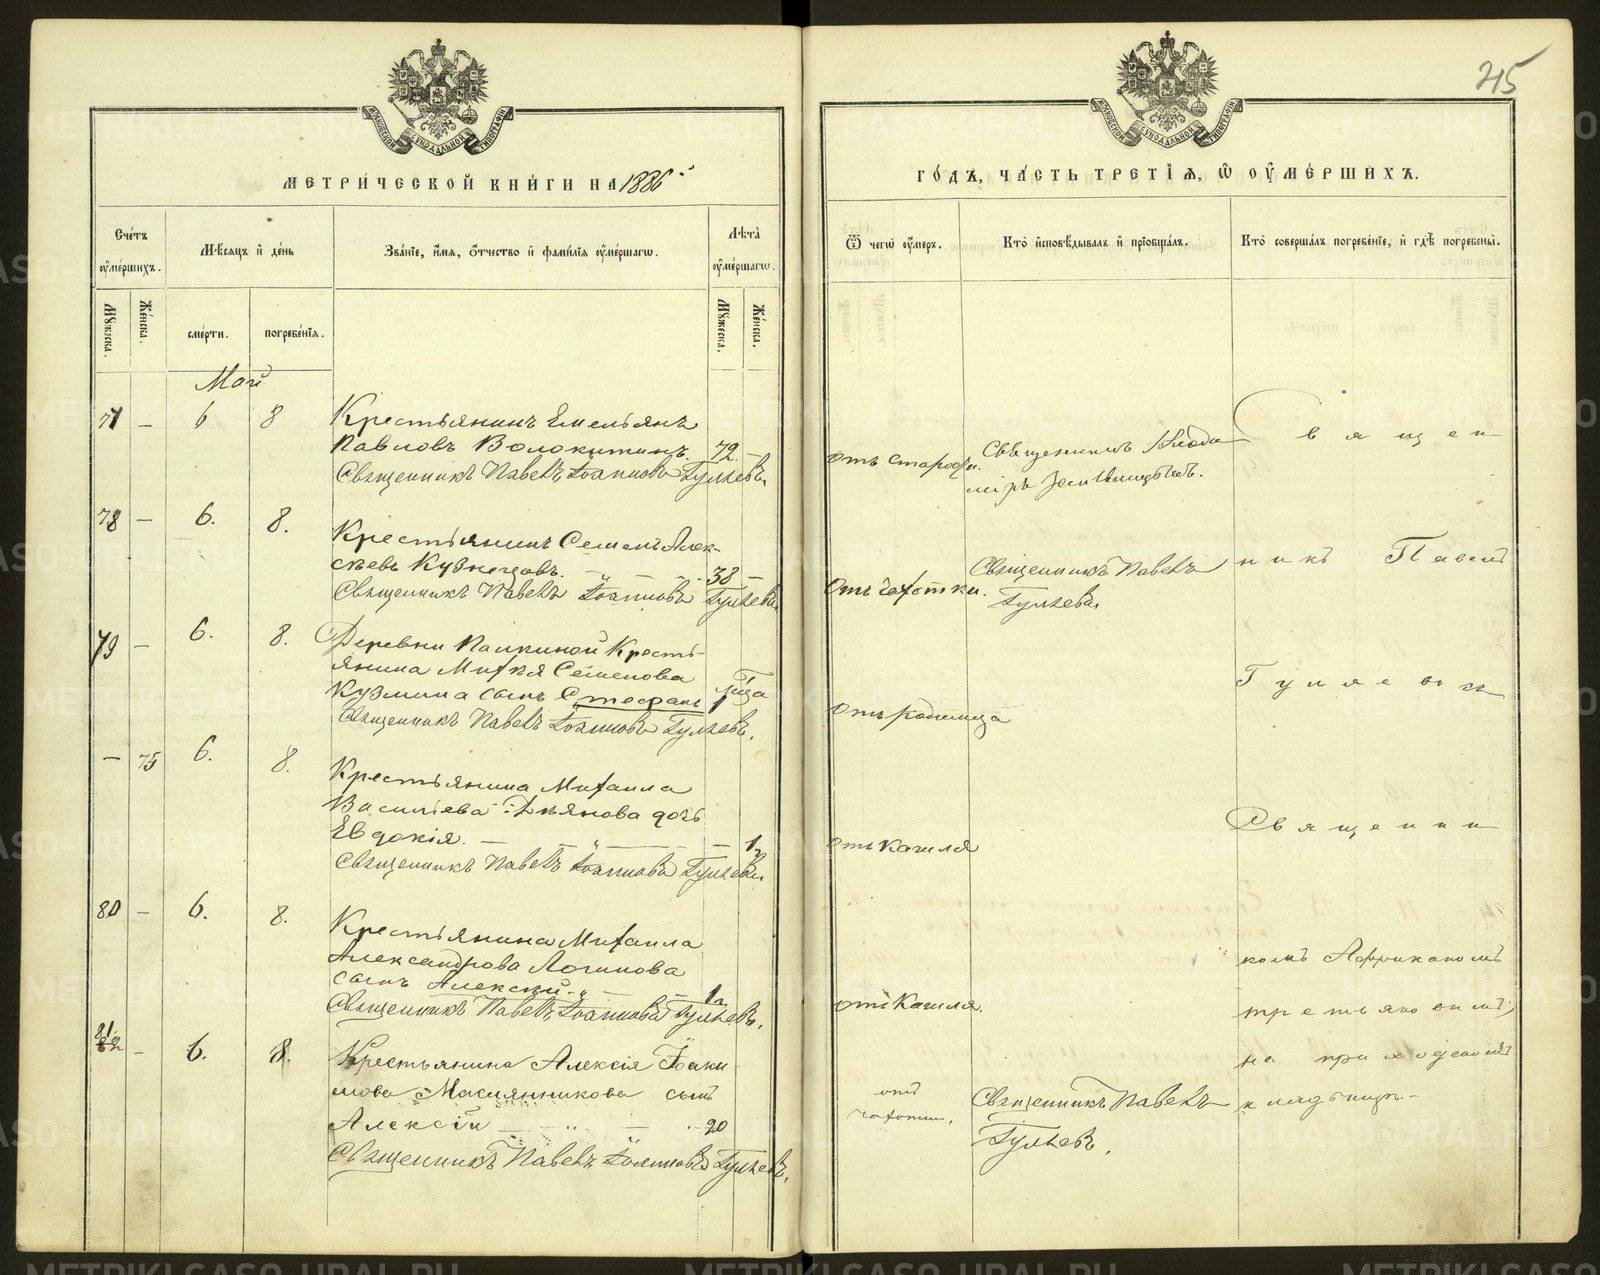 МОСКОВСКОЙ СѴНОДАЛЬНОЙ ТИПОГРАФІИ
МЕТРИ́ЧЕСКОЙ КНИ́ГИ НА 1886
Сче́тъ ᲂу҆ме́ршихъ.
Мѣ́сѧцъ и҆ де́нь
Зва́нїе, и҆́мѧ, ѻ҆́тчество и҆ фами́лїѧ ᲂу҆ме́ршагѡ.
Лѣ́та ᲂу҆ме́ршагѡ.
Мꙋ́жеска.
Же́нска.
сме́рти.
погребе́нїѧ.
Мꙋ́жеска.
Же́нска.
Май
77 — 6 8 Крестьянинъ Емельянъ
Павловъ Волокитинъ. 72. —
Священникъ Павелъ Іоанновъ Гуляевъ.
78 — 6. 8. Крестьянинъ Семенъ Алек-
сѣевъ Кузнецовъ. 38 —
Священникъ Павелъ Іоанновъ Гуляевъ.
79 — 6. 8. Деревни Палкиной Кресть-
янина Михея Семенова
Кузмина сынъ Стефанъ
Священникъ Павелъ Іоанновъ Гуляевъ.
— 75 6. 8. Крестьянина Михаила
Васильева Деянова дочь
Евдокія. — 1 г.
Священникъ Павелъ Іоанновъ Гуляевъ.
80 — 6. 8. Крестьянина Михаила
Александрова Логинова
сынъ Алексѣй — 1 г.
Священникъ Павелъ Іоанновъ Гуляевъ.
81 — 6. 8. Крестьянина Алексія Іоаки-
мова Маслянникова сынъ
Алексій — 20
Священникъ Павелъ Іоанновъ Гуляевъ.
215
МОСКОВСКОЙ СѴНОДАЛЬНОЙ ТИПОГРАФІИ
ГО́ДЪ, ЧА́СТЬ ТРЕТЇѦ, Ѡ҆ ОУ҆МЕ́РШИХЪ.
Ѿ чегѡ̀ ᲂу҆́меръ.
Кто̀ и҆сповѣ́дывалъ и҆ прїѡбща́лъ.
Кто̀ соверша́лъ погребе́нїе, и҆ гдѣ̀ погребены̀.
отъ старости.
Священникъ Влади
міръ
Священ
отъ чахотки.
Священникъ Павелъ
Гуляевъ.
никъ Павелъ
отъ родимца
Гуляевъ
отъ кашля
Священни
отъ кашля.
комъ Африканомъ
Третьяковымъ
на приходскомъ
кладбищѣ.
отъ
чахотки.
Священникъ Павелъ
Гуляевъ.
METRIKI.GASO-URAL.RU